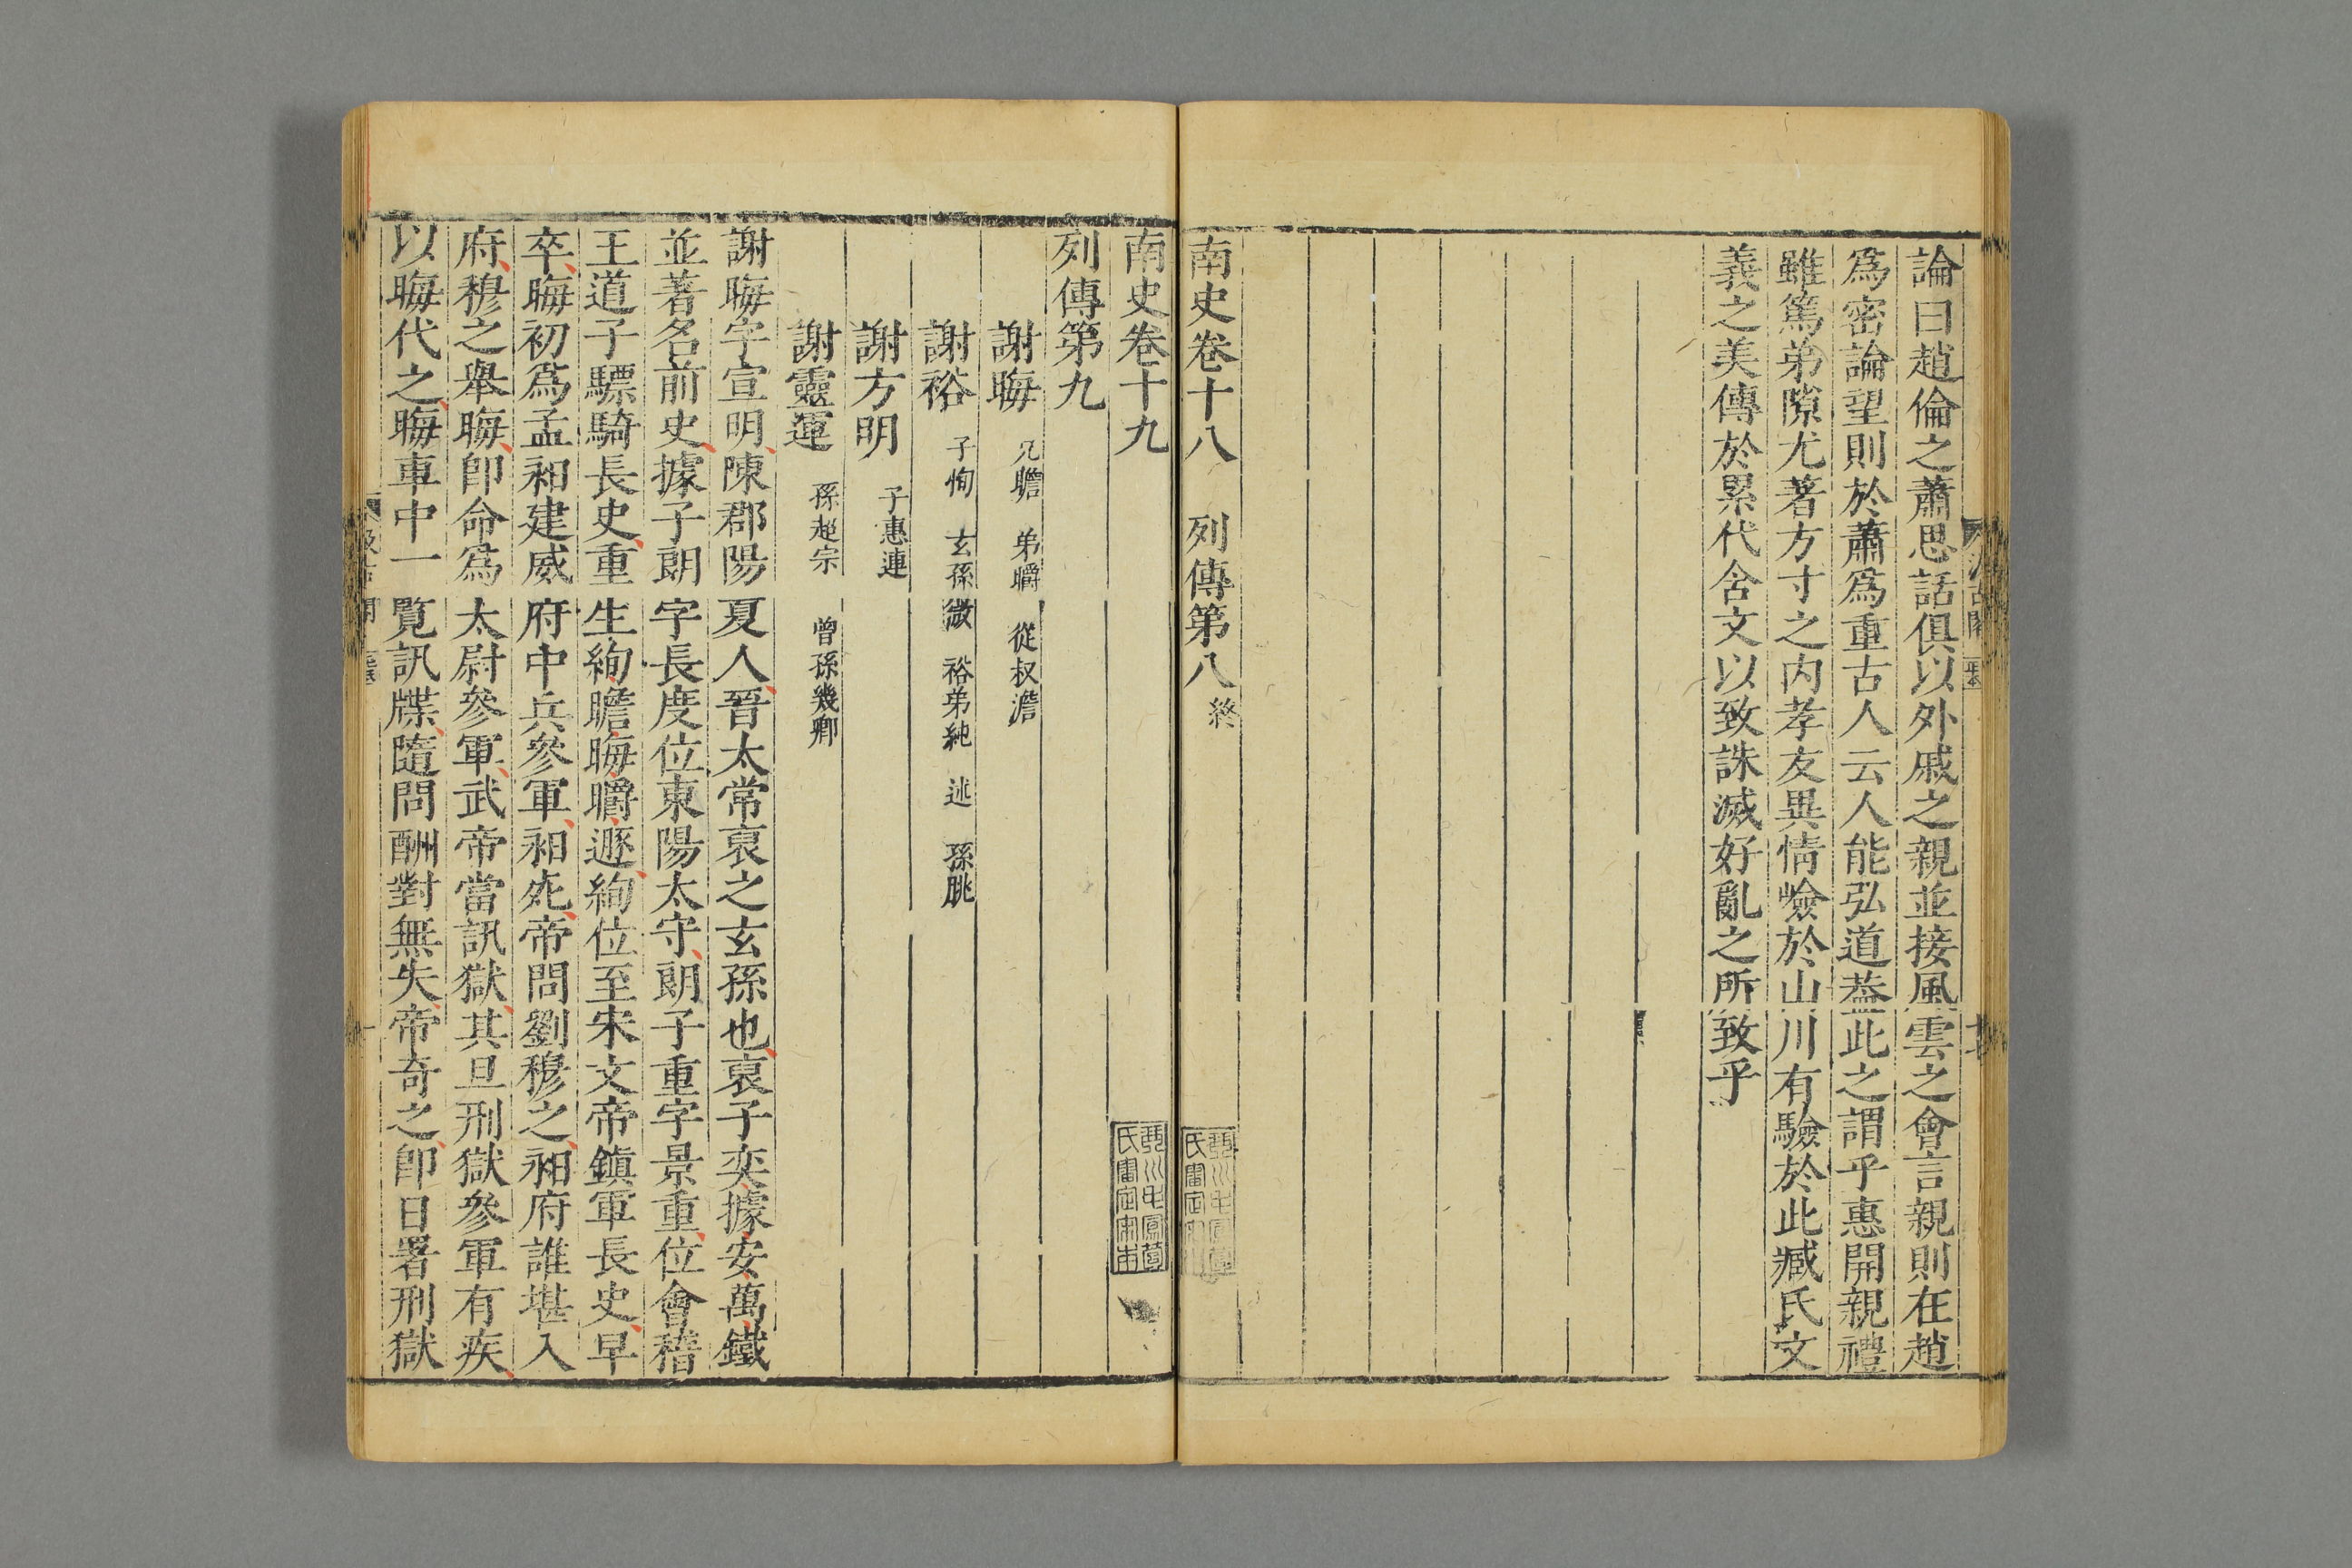 論曰趙倫之蕭思話俱以外戚之親並接風雲之會言親則在趙
爲密論望則於蕭爲重古人云人能弘道蓋此之謂乎惠開親禮
雖篤弟隙尤著方寸之内孝友異情嶮於山川有驗於此臧氏文
義之美傳於累代含文以致誅滅好亂之所致乎
南史卷十八 列傳第八 終
南史卷十九
列傳第九
謝晦 兄瞻 弟㬭 從叔澹
謝裕 子恂 玄孫微 裕弟純 述 孫朓
謝方明 子惠連
謝靈運 孫超宗 曾孫幾卿
謝晦字宣明陳郡陽夏人晉太常裒之玄孫也裒子奕據安萬鐵
並著名前史據子朗字長度位東陽太守朗子重字景重位會稽
王道子驃騎長史重生絢瞻晦㬭遯絢位至宋文帝鎮軍長史早
卒晦初爲孟昶建威府中兵參軍昶死帝問劉穆之昶府誰堪入
府穆之舉晦卽命爲太尉參軍武帝當訊獄其旦刑獄參軍有疾
以晦代之晦車中一覧訊牒隨問酬對無失帝奇之卽日署刑獄